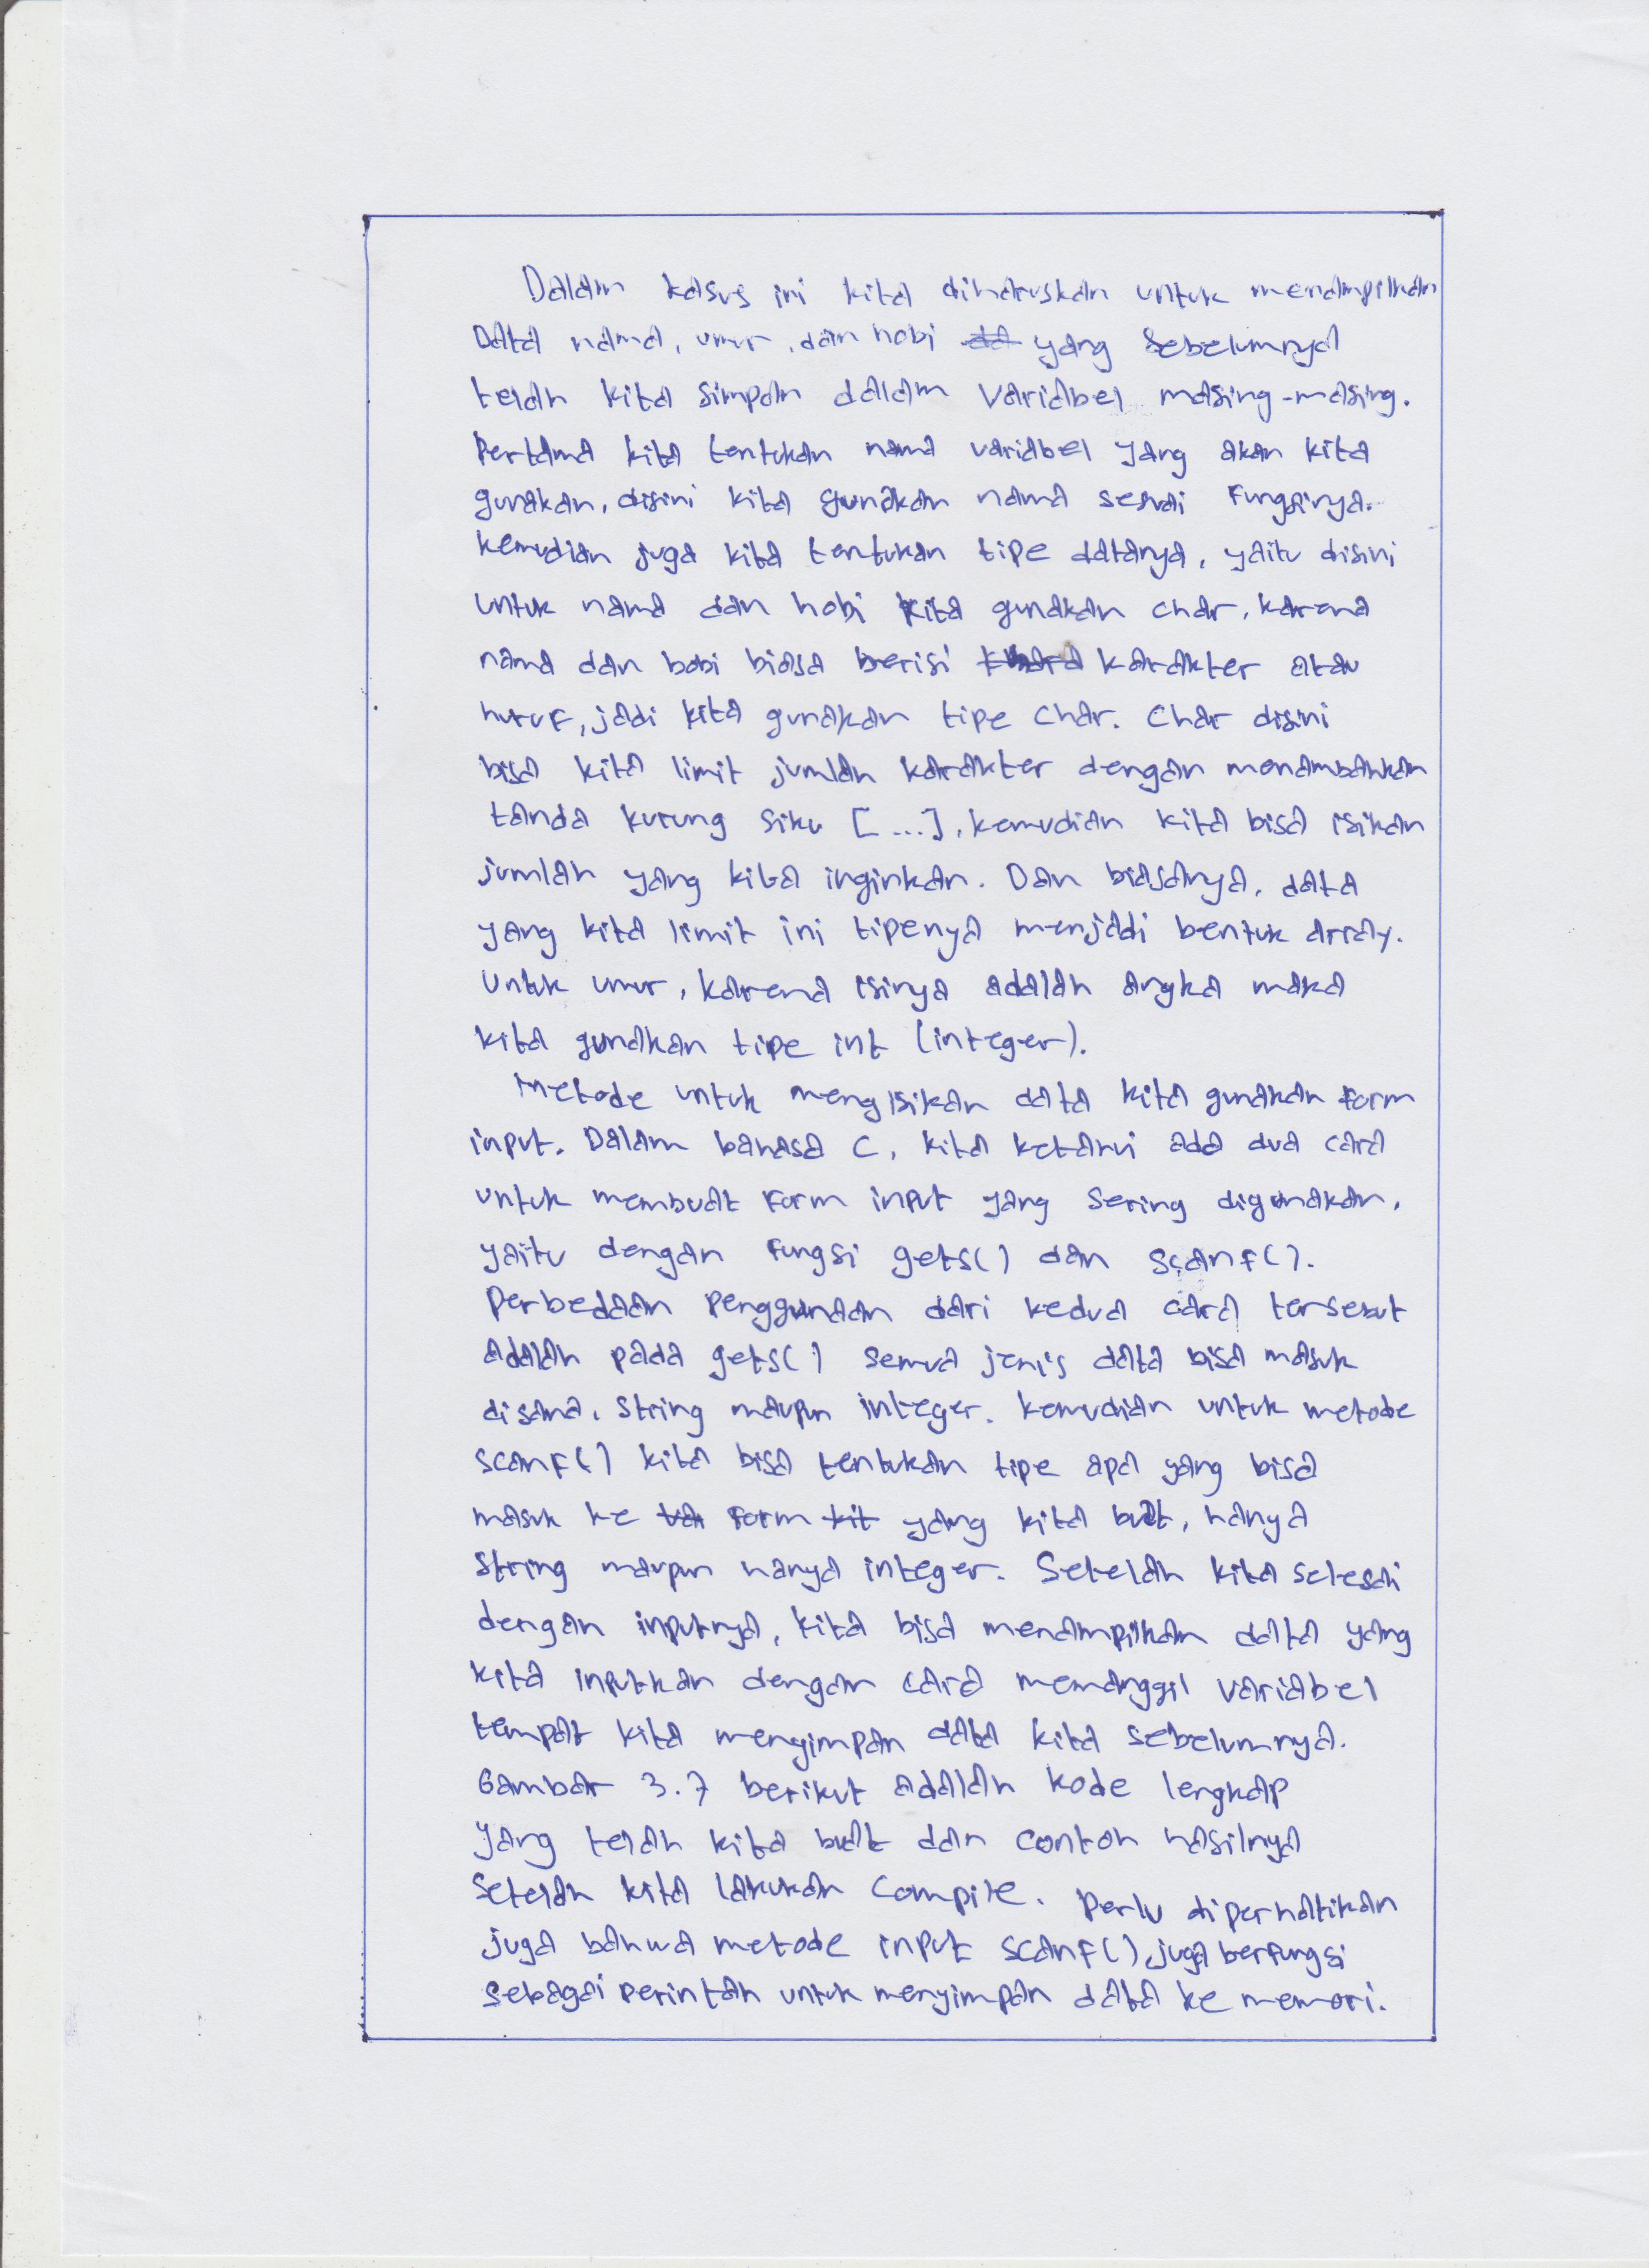 Dalam kasus ini kita diharuskan untuk menampilkan
Data nama, umur, dan hobi da yang Sebelumnya
telah kita simpan dalam Variabel masing-masing.
Pertama kita tentukan nama variabel yang akan kita
gunakan, disini kita gunakan nama sesuai Fungsinya.
kemudian juga kita tentukan tipe datanya, yaitu disini
untuk nama dan hobi kita gunakan char, karena
nama dan hobi biasa berisi karakter atau
huruf, jadi kita gunakan tipe Char. Char disini
bisa kita limit jumlah karakter dengan menambahkan
tanda kurung siku [...], kemudian kita bisa isikan
jumlah yang kita inginkan. Dan biasanya, data
yang kita limit ini tipenya menjadi bentuk array.
Untuk umur, karena isinya adalah angka maka
kita gunakan tipe int (integer).
Metode untuk mengisikan data kita gunakan form
input. Dalam bahasa C, kita ketahui ada dua cara
untuk membuat Form input yang Sering digunakan,
yaitu dengan Fungsi gets() dan scanf().
Perbedaan Penggunaan dari kedua cara tersebut
adalah pada gets() semua jenis data bisa masuk
disana, String maupun integer. kemudian untuk metode
scanf() kita bisa tentukan tipe apa yang bisa
masuk ke va form kit yang kita buat, hanya
string maupun hanya integer. Setelah kita selesai
dengan inputnya, kita bisa menampilkan data yang
kita inputkan dengan cara memanggil variabel
tempat kita mengimpan data kita sebelumnya.
Gambar 3.7 berikut adalah kode lengkap
yang telah kita buat dan contoh hasilnya
Setelah kita lakukan Compile. Perlu diperhatikan
juga bahwa metode input scanf(), juga berfungsi
sebagai perintah untuk menyimpan data ke memori.